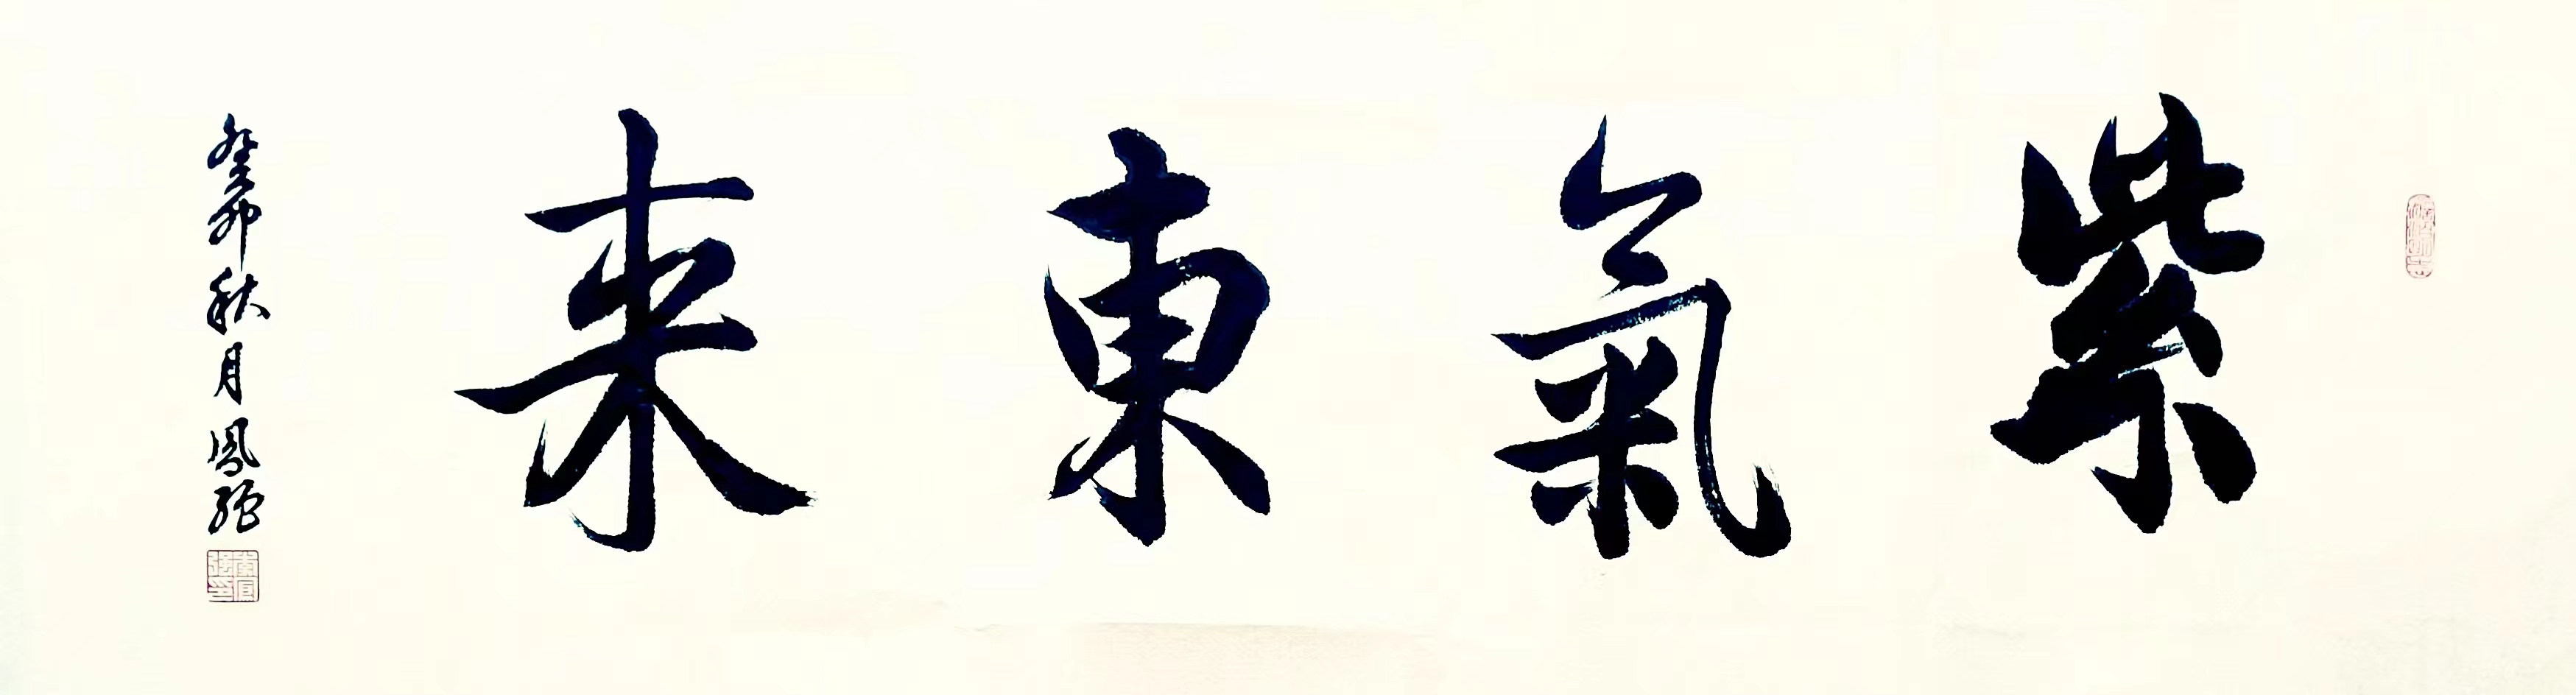 紫氣東来
癸卯秋月鳳強